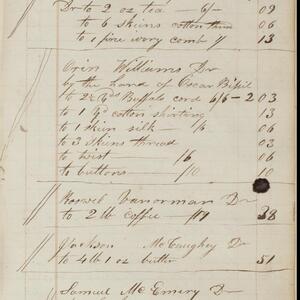 Dr to 2 oz tea 6/- 09
to 6 skins cotton 06
to 1 fine ivory comb 1/ 13
Orin Williams Dr
by the hand of Oscar
to 2½ yds Buffalo cord 6/6 - 2 03
to 1 yd cotton shirting 13
to 1 skin silk - /6 06
to 3 skins thread 03
to twist /6 06
to buttons /10 10
Vanorman Dr
to 2 lb coffee 38
Jackson McCaughey Dr
to 4 lb 1 oz butter 51
Samuel McEmery D